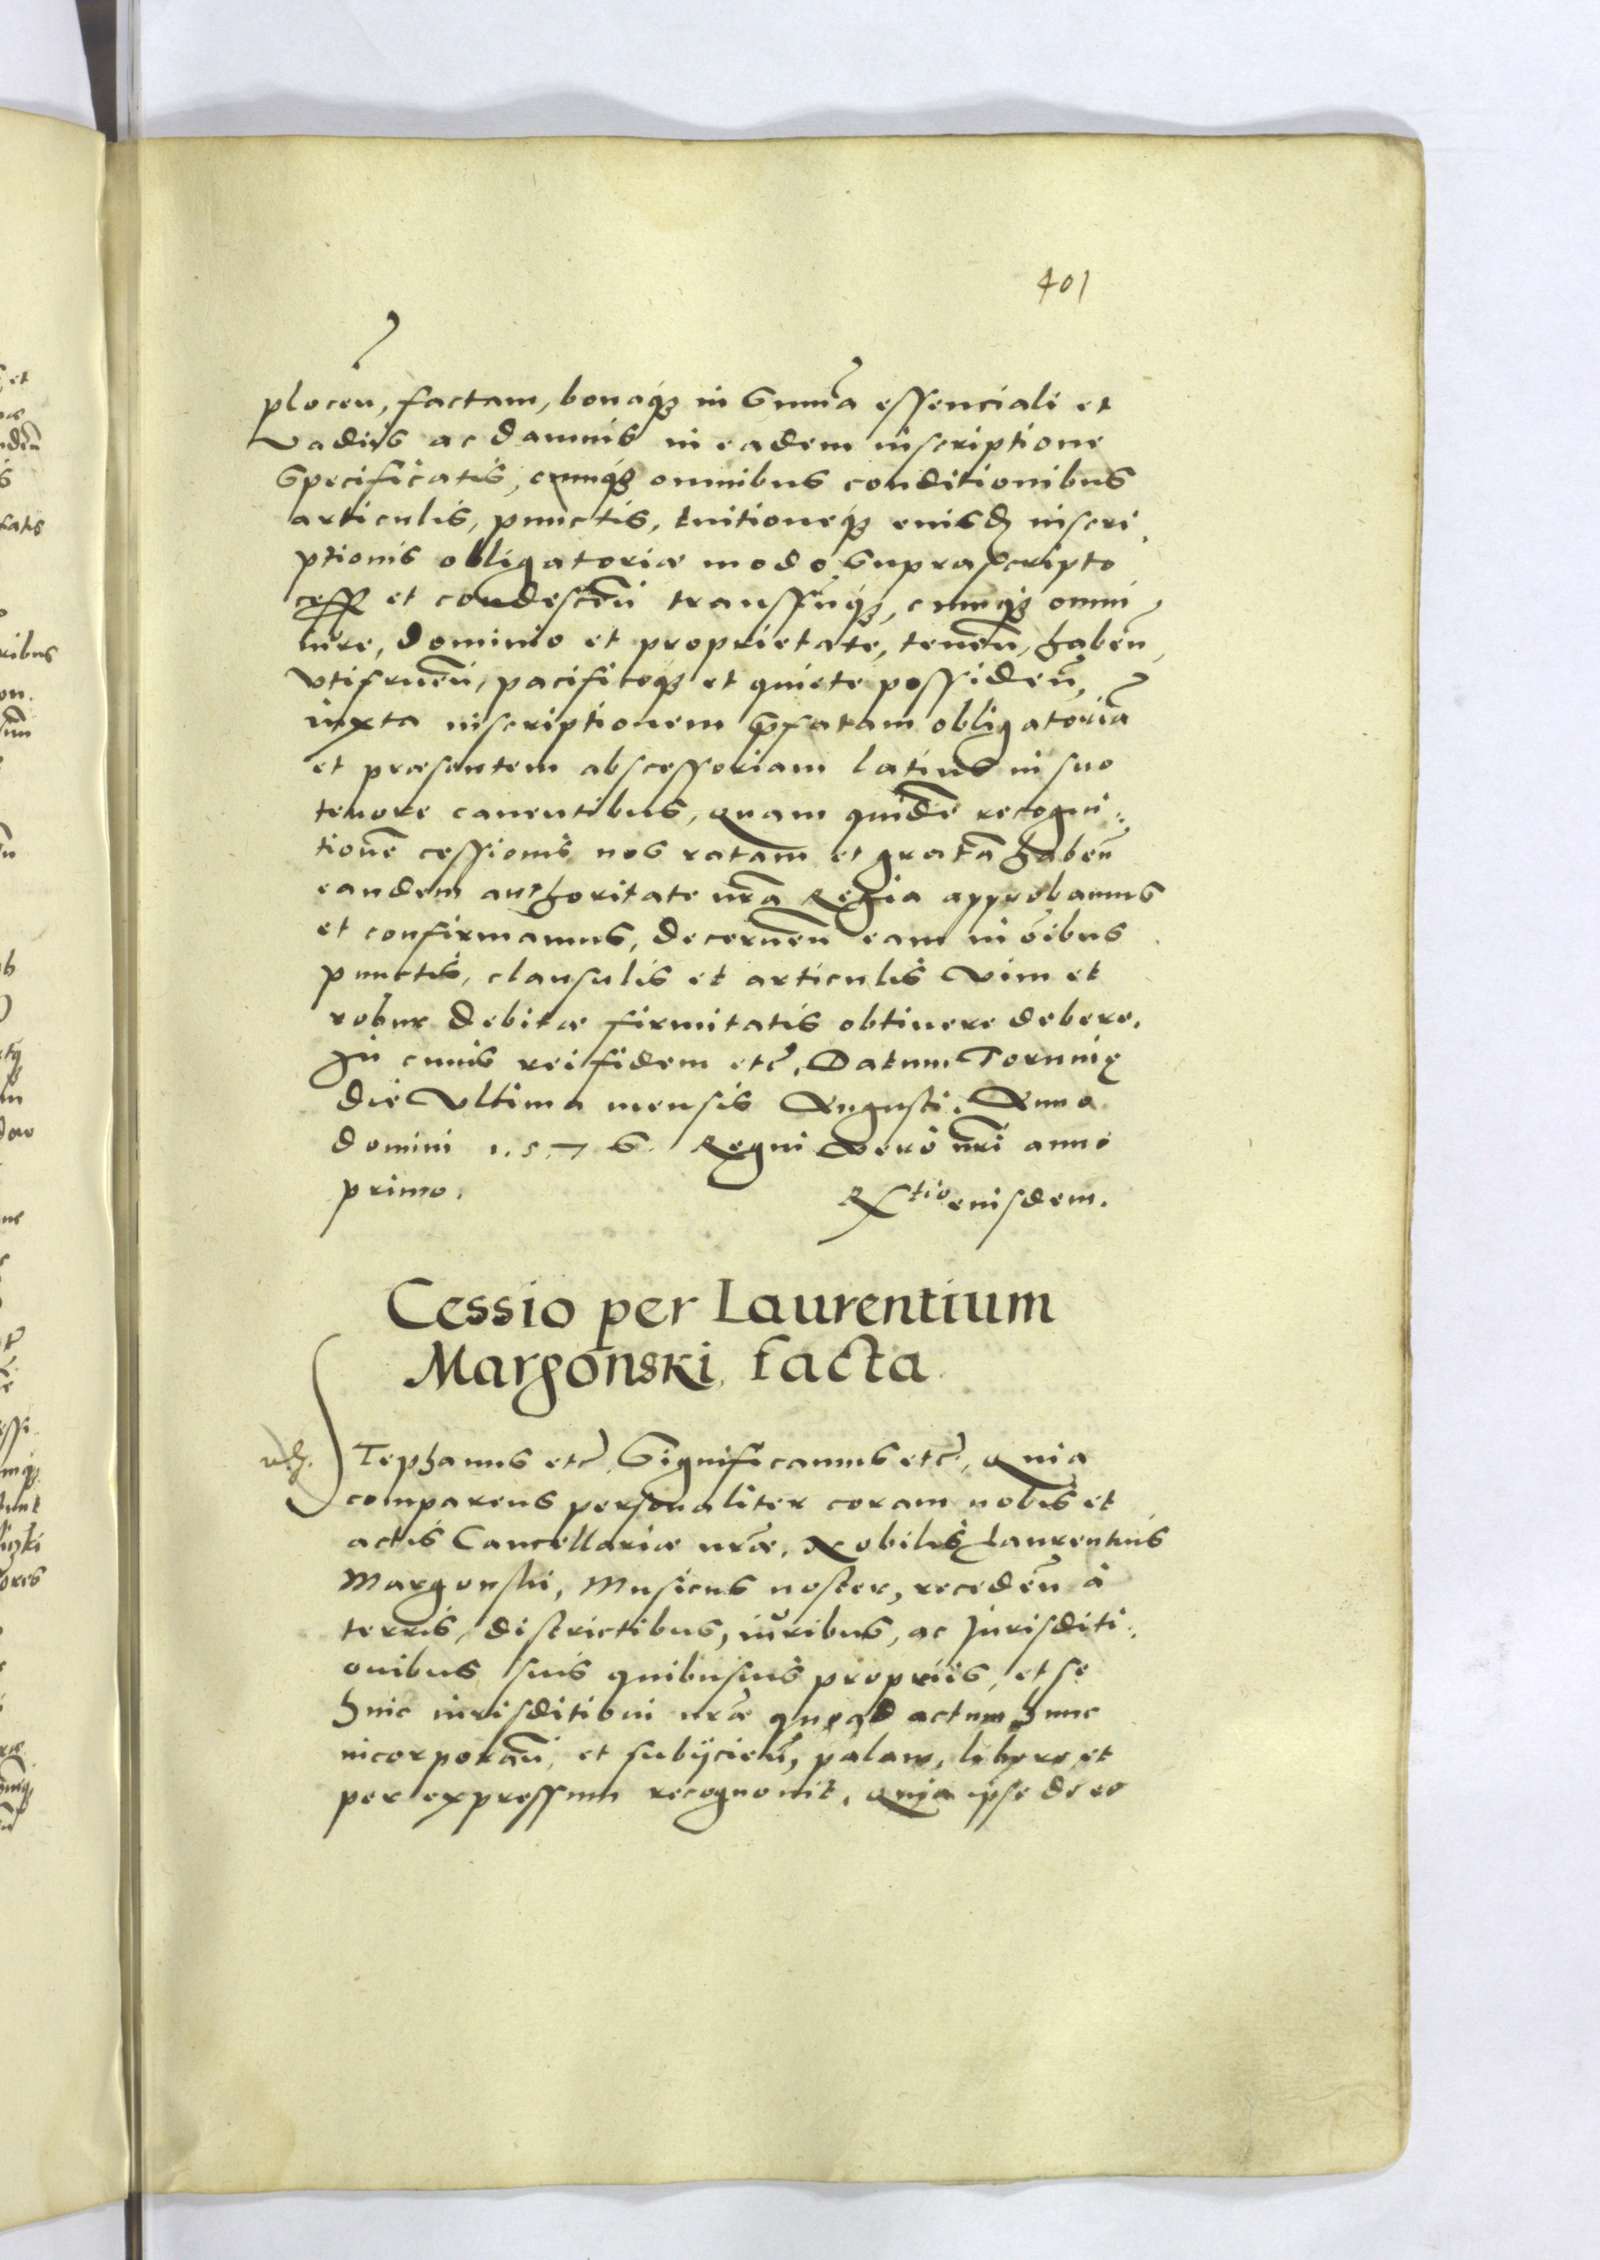 401
plocen, factam, bonaq3 in sum̃a essenciali et
vadiis ac damnis in eadem inscriptione
specificatis, cumq3 omnibus conditionibus
articulis, punctis, tuitioneq3 eiusd inscri
ptionis obligatoriæ modo suprascripto
et condescen̄ transfūq3, cumq3 omni
iure, dominio et proprietate, tenen̄, haben̄,
vtifruen̄, pacificeq3 et quiete possiden̄,
iuxta inscriptionem p̄fatam obligatoriā
et præsentem abscessoriam latius in suo
tenore canentibus, Quam quidē recogni:
tionē cessionis nos ratam et gratā haben̄
eandem authoritate nr̄a Regia approbamus
et confirmamus, decernen̄ eam in oībus
punctis, clausulis et articulis vim et
robur debitæ firmitatis obtinere debere.
In cuius rei fidem etc̄. Datum Toruniæ
die Vltima mensis Augusti. Anno
domini 1.5.7 6. Regni vero nr̄i anno
primo.
Rtio eiusdem.
Cessio per Laurentium
Margonski facta
STephanus etc̄ Significamus etc̄, Quia
comparens personaliter coram nobis et
actis Cancellariæ nr̄æ, Nobilis Laurentius
Margonski, Musicus noster, receden̄ à
terris, districtibus, iŭribus, ac Jurisditi:
onibus suis quibusuis propriis, et se
huic iurisditioni nr̄æ quoad actum hunc
incorporan̄, et subÿcien̄, palam, libere et
per expressum recognouit, Quia ipse de eo